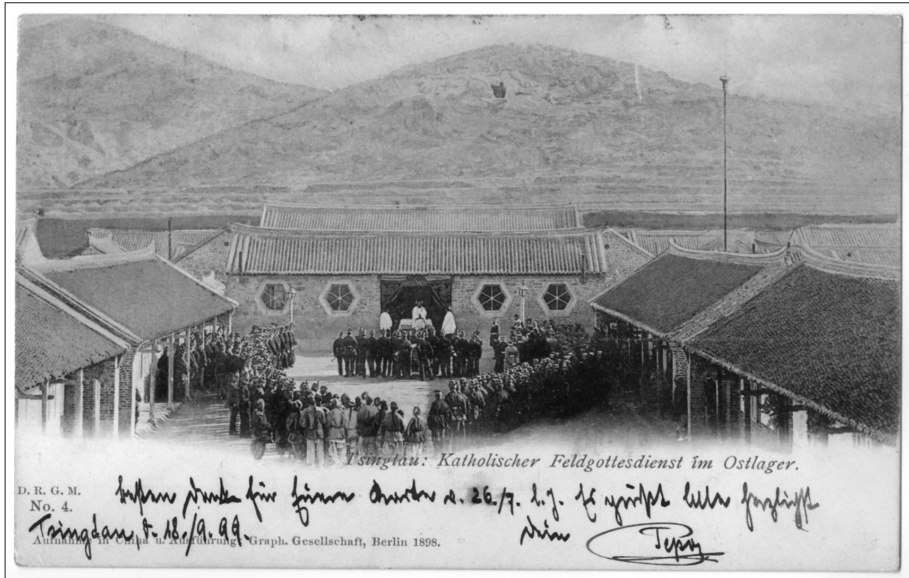 Tsingtau: Katholischer Feldgottesdienst im Ostlager.
D. R. G. M.
No. 4.
besten Dank für Karte v. 26./7. l. J. Es grüßt herzlichst
Tsingtau, d. 18./9. 99.
Dein
Aufnahme in China u. Ausführung: Graph. Gesellschaft, Berlin 1898.